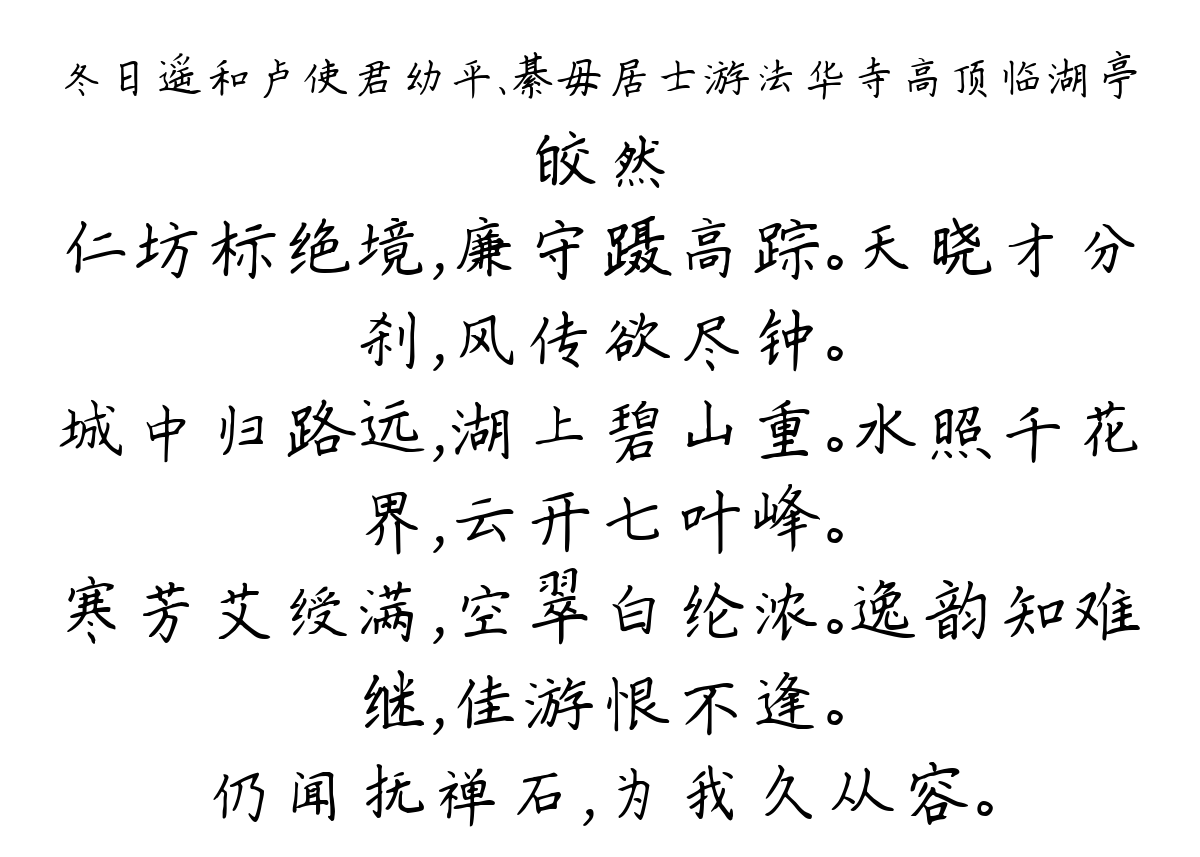 冬日遥和卢使君幼平、綦毋居士游法华寺高顶临湖亭
皎然
仁坊标绝境,廉守蹑高踪。天晓才分
刹,风传欲尽钟。
城中归路远,湖上碧山重。水照千花
界,云开七叶峰。
寒芳艾绶满,空翠白纶浓。逸韵知难
继,佳游恨不逢。
仍闻抚禅石,为我久从容。